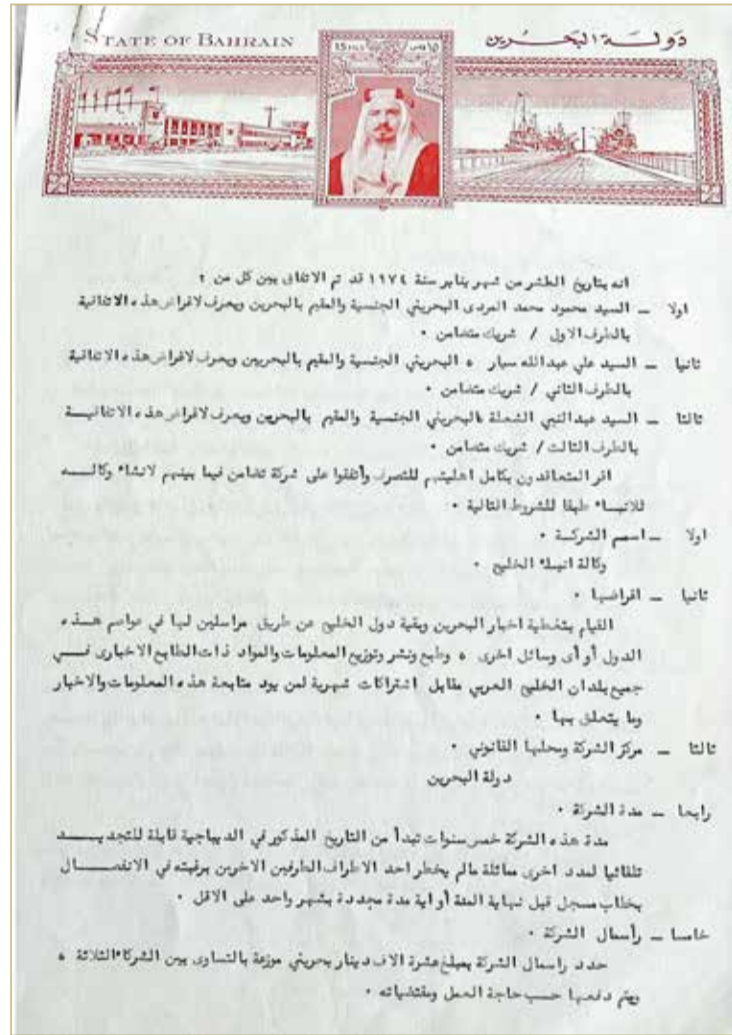 STATE OF BAHRAIN
دولة البحرين
انه بتاريخ العاشر من شهر يناير سنة ١٩٧٤ قد تم الاتفاق بين كل من :
اولا – السيد محمود محمد المردى البحريني الجنسية والمقيم بالبحرين ويعرف لاغراض هذه الاتفاقية
بالطرف الاول / شريك متضامن .
ثانيا – السيد علي عبدالله سيار ، البحريني الجنسية والمقيم بالبحرين ويعرف لاغراض هذه الاتفاقية
بالطرف الثاني / شريك متضامن .
ثالثا – السيد عبدالنبي الشعلة البحريني الجنسية والمقيم بالبحرين ويعرف لاغراض هذه الاتفاقيــة
بالطرف الثالث / شريك متضامن .
اقر المتعاقدون بكامل اهليتهم للتصرف وأتفقوا على شركة تضامن فيما بينهم لانشاء وكالــه
للانبــاء طبقا للشروط التالية .
اولا – اسم الشركـة .
وكالة انباء الخليج .
ثانيا – اغراضها .
القيام بتغطية اخبار البحرين وبقية دول الخليج عن طريق مراسلين لها في عواصم هـــذه
الدول أو أى وسائل اخرى ، وطبع ونشر وتوزيع المعلومات والمواد ذات الطابع الاخبارى فـــي
جميع بلدان الخليج العربي مقابل اشتراكات شهرية لمن يود متابعة هذه المعلومات والاخبار
وما يتعلق بها .
ثالثا – مركز الشركة ومحلها القانوني .
دولة البحرين
رابعا – مدة الشركة .
مدة هذه الشركة خمس سنوات تبدأ من التاريخ المذكور في الديباجية قابلة للتجديـــد
تلقائيا لمدد اخرى مماثلة مالم يخطر احد الاطراف الطرفين الاخرين برغبته في الانفصـــال
بخطاب مسجل قبل نهاية المدة أو اية مدة مجددة بشهر واحد على الاقل .
خامسا – رأسمال الشركة .
حدد راسمال الشركة بمبلغ عشرة الاف دينار بحريني موزعة بالتساوى بين الشركاء الثلاثة ،
ويتم دفعها حسب حاجة العمل ومقتضياته .